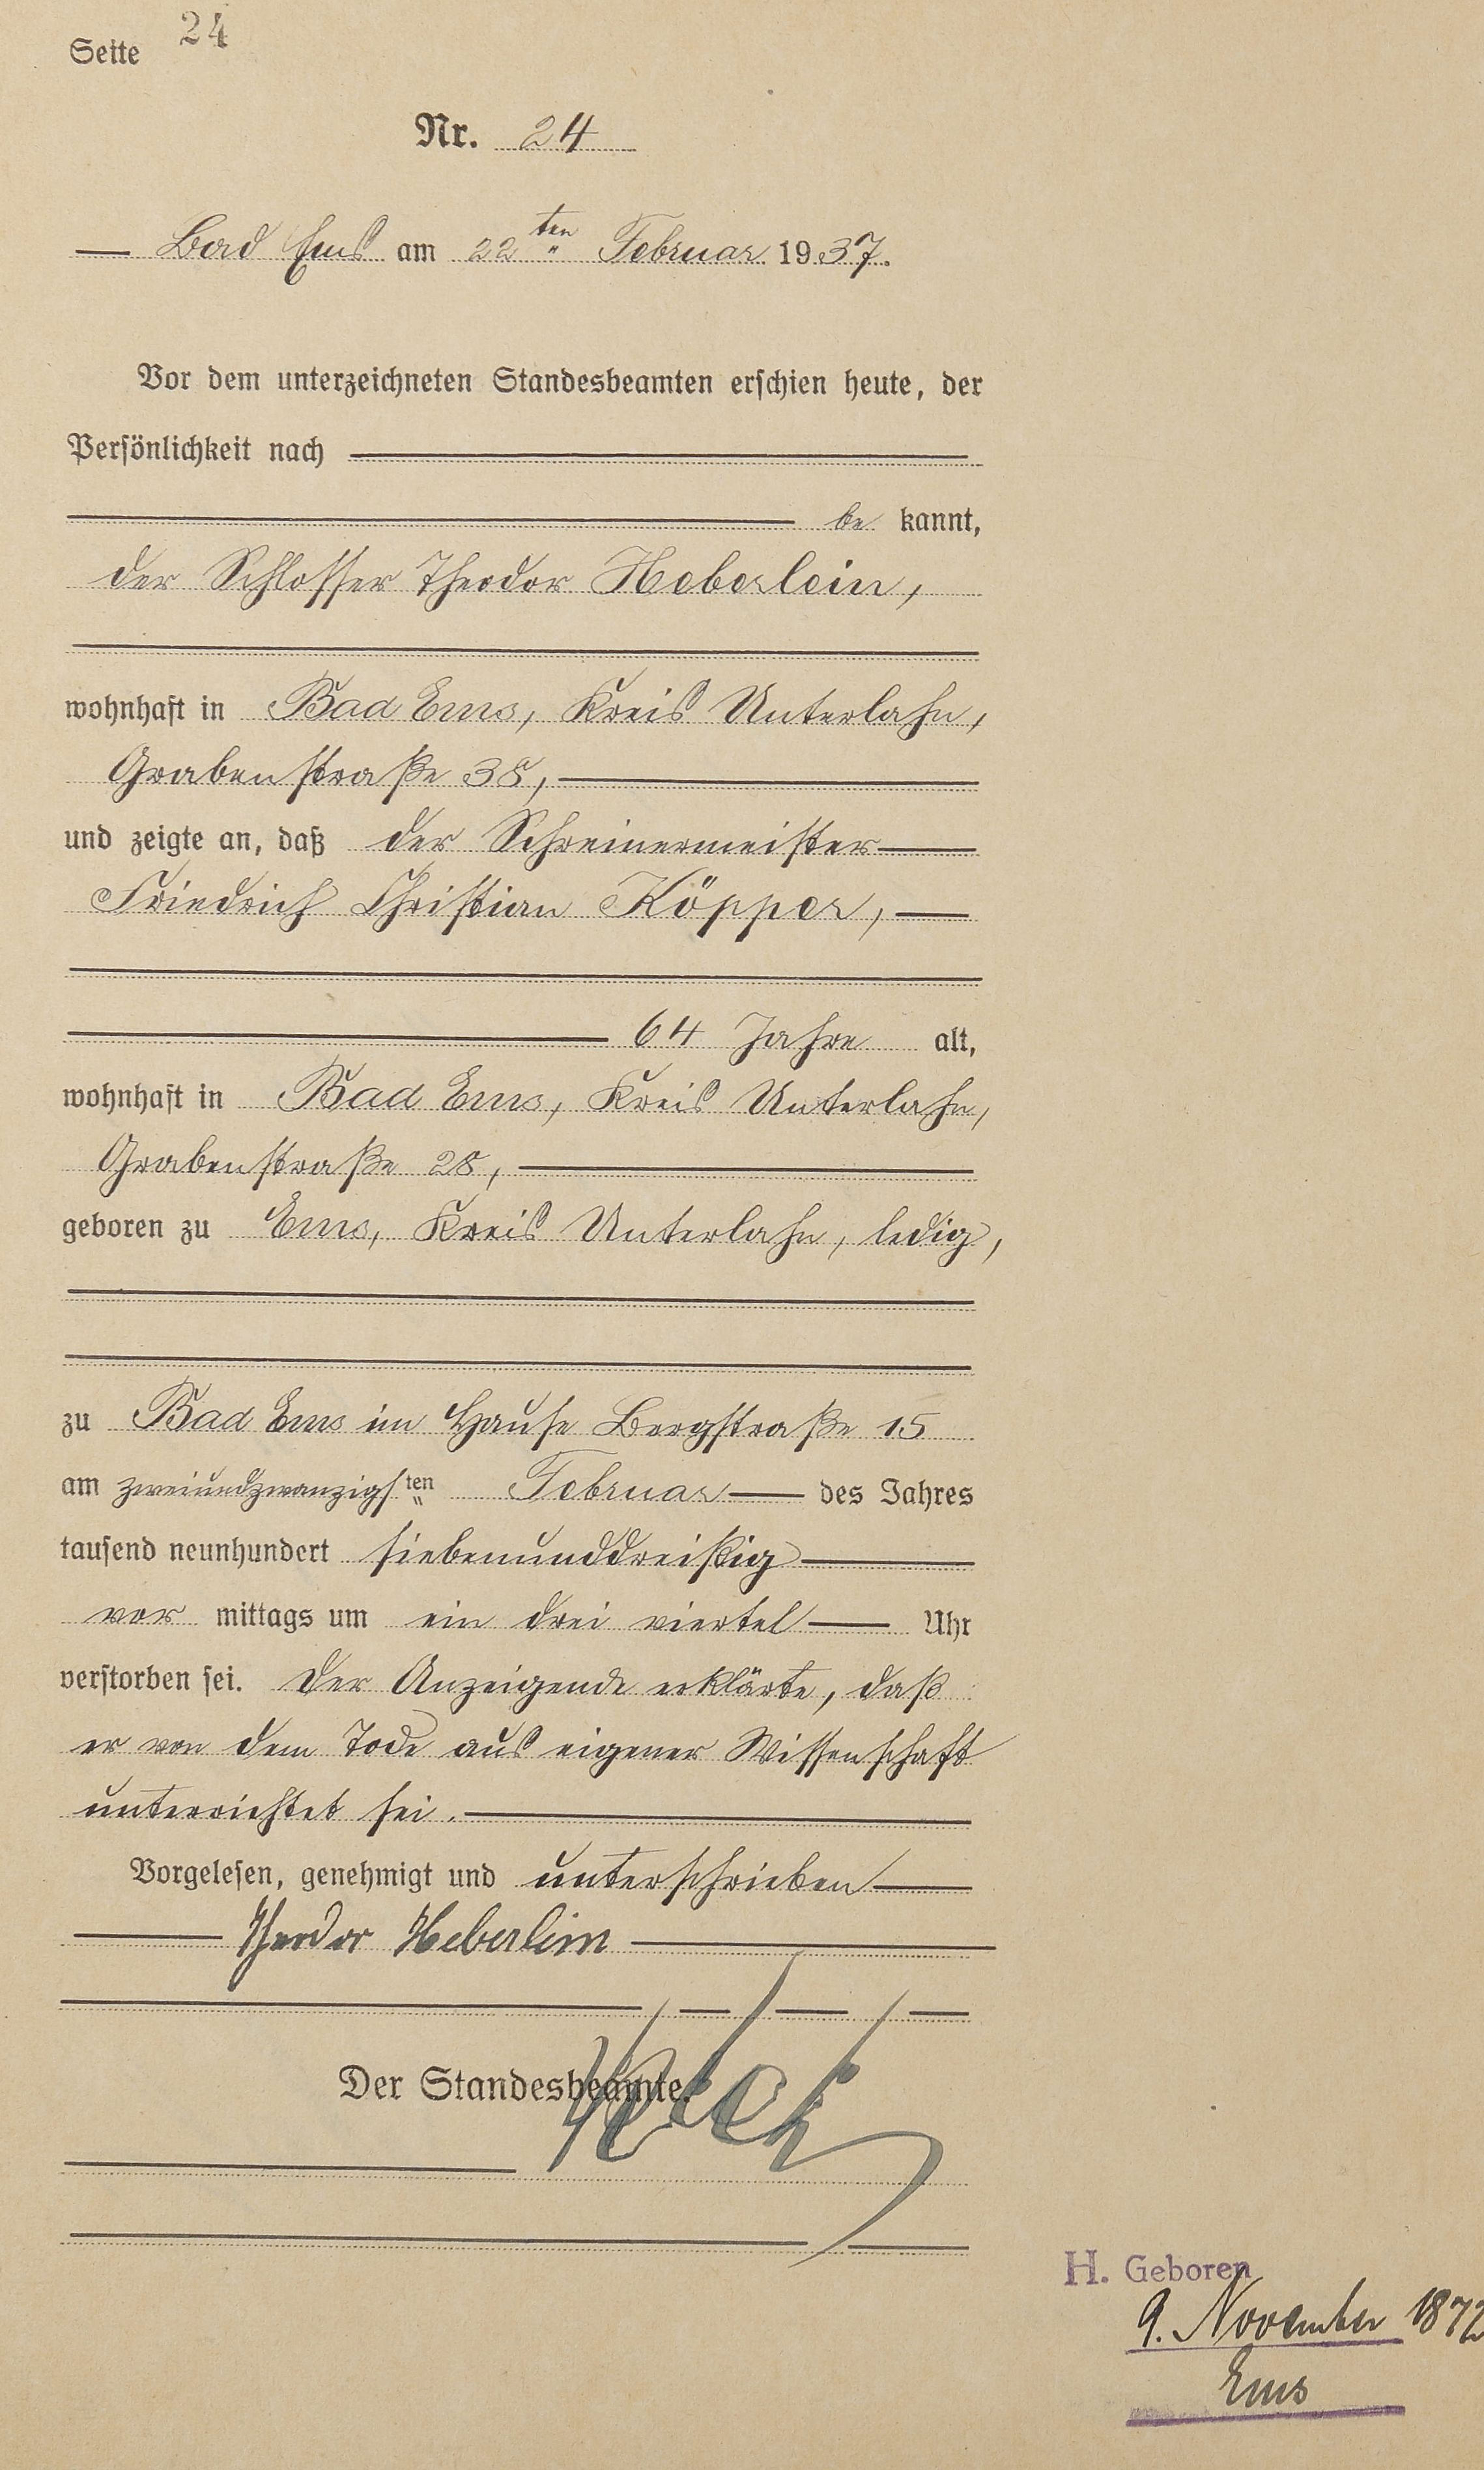 Seite 24
Nr. 24
Bad Ems am 22ten Februar 1937.
Vor dem unterzeichneten Standesbeamten erschien heute, der
Persönlichkeit nach
be kannt,
der Schlosser Theodor Heberlein,
wohnhaft in Bad Ems, Kreis Unterlahn,
Grabenstraße 38,
und zeigte an, daß der Schreinermeister
Friedrich Christian Köpper,
64 Jahre alt,
wohnhaft in Bad Ems, Kreis Unterlahn,
Grabenstraße 28,
geboren zu Ems, Kreis Unterlahn, ledig,
zu Bad Ems im Hause Bergstraße 15
am zweiundzwanzigsten Februar des Jahres
tausend neunhundert siebenunddreißig
vor mittags um ein drei viertel Uhr
verstorben sei. Der Anzeigende erklärte, daß
er von dem Tode aus eigener Wissenschaft
unterrichtet sei.
Vorgelesen, genehmigt und unterschrieben
Theodor Heberlein
Der Standesbeamte.
H. Geboren
9. November 1872
Ems